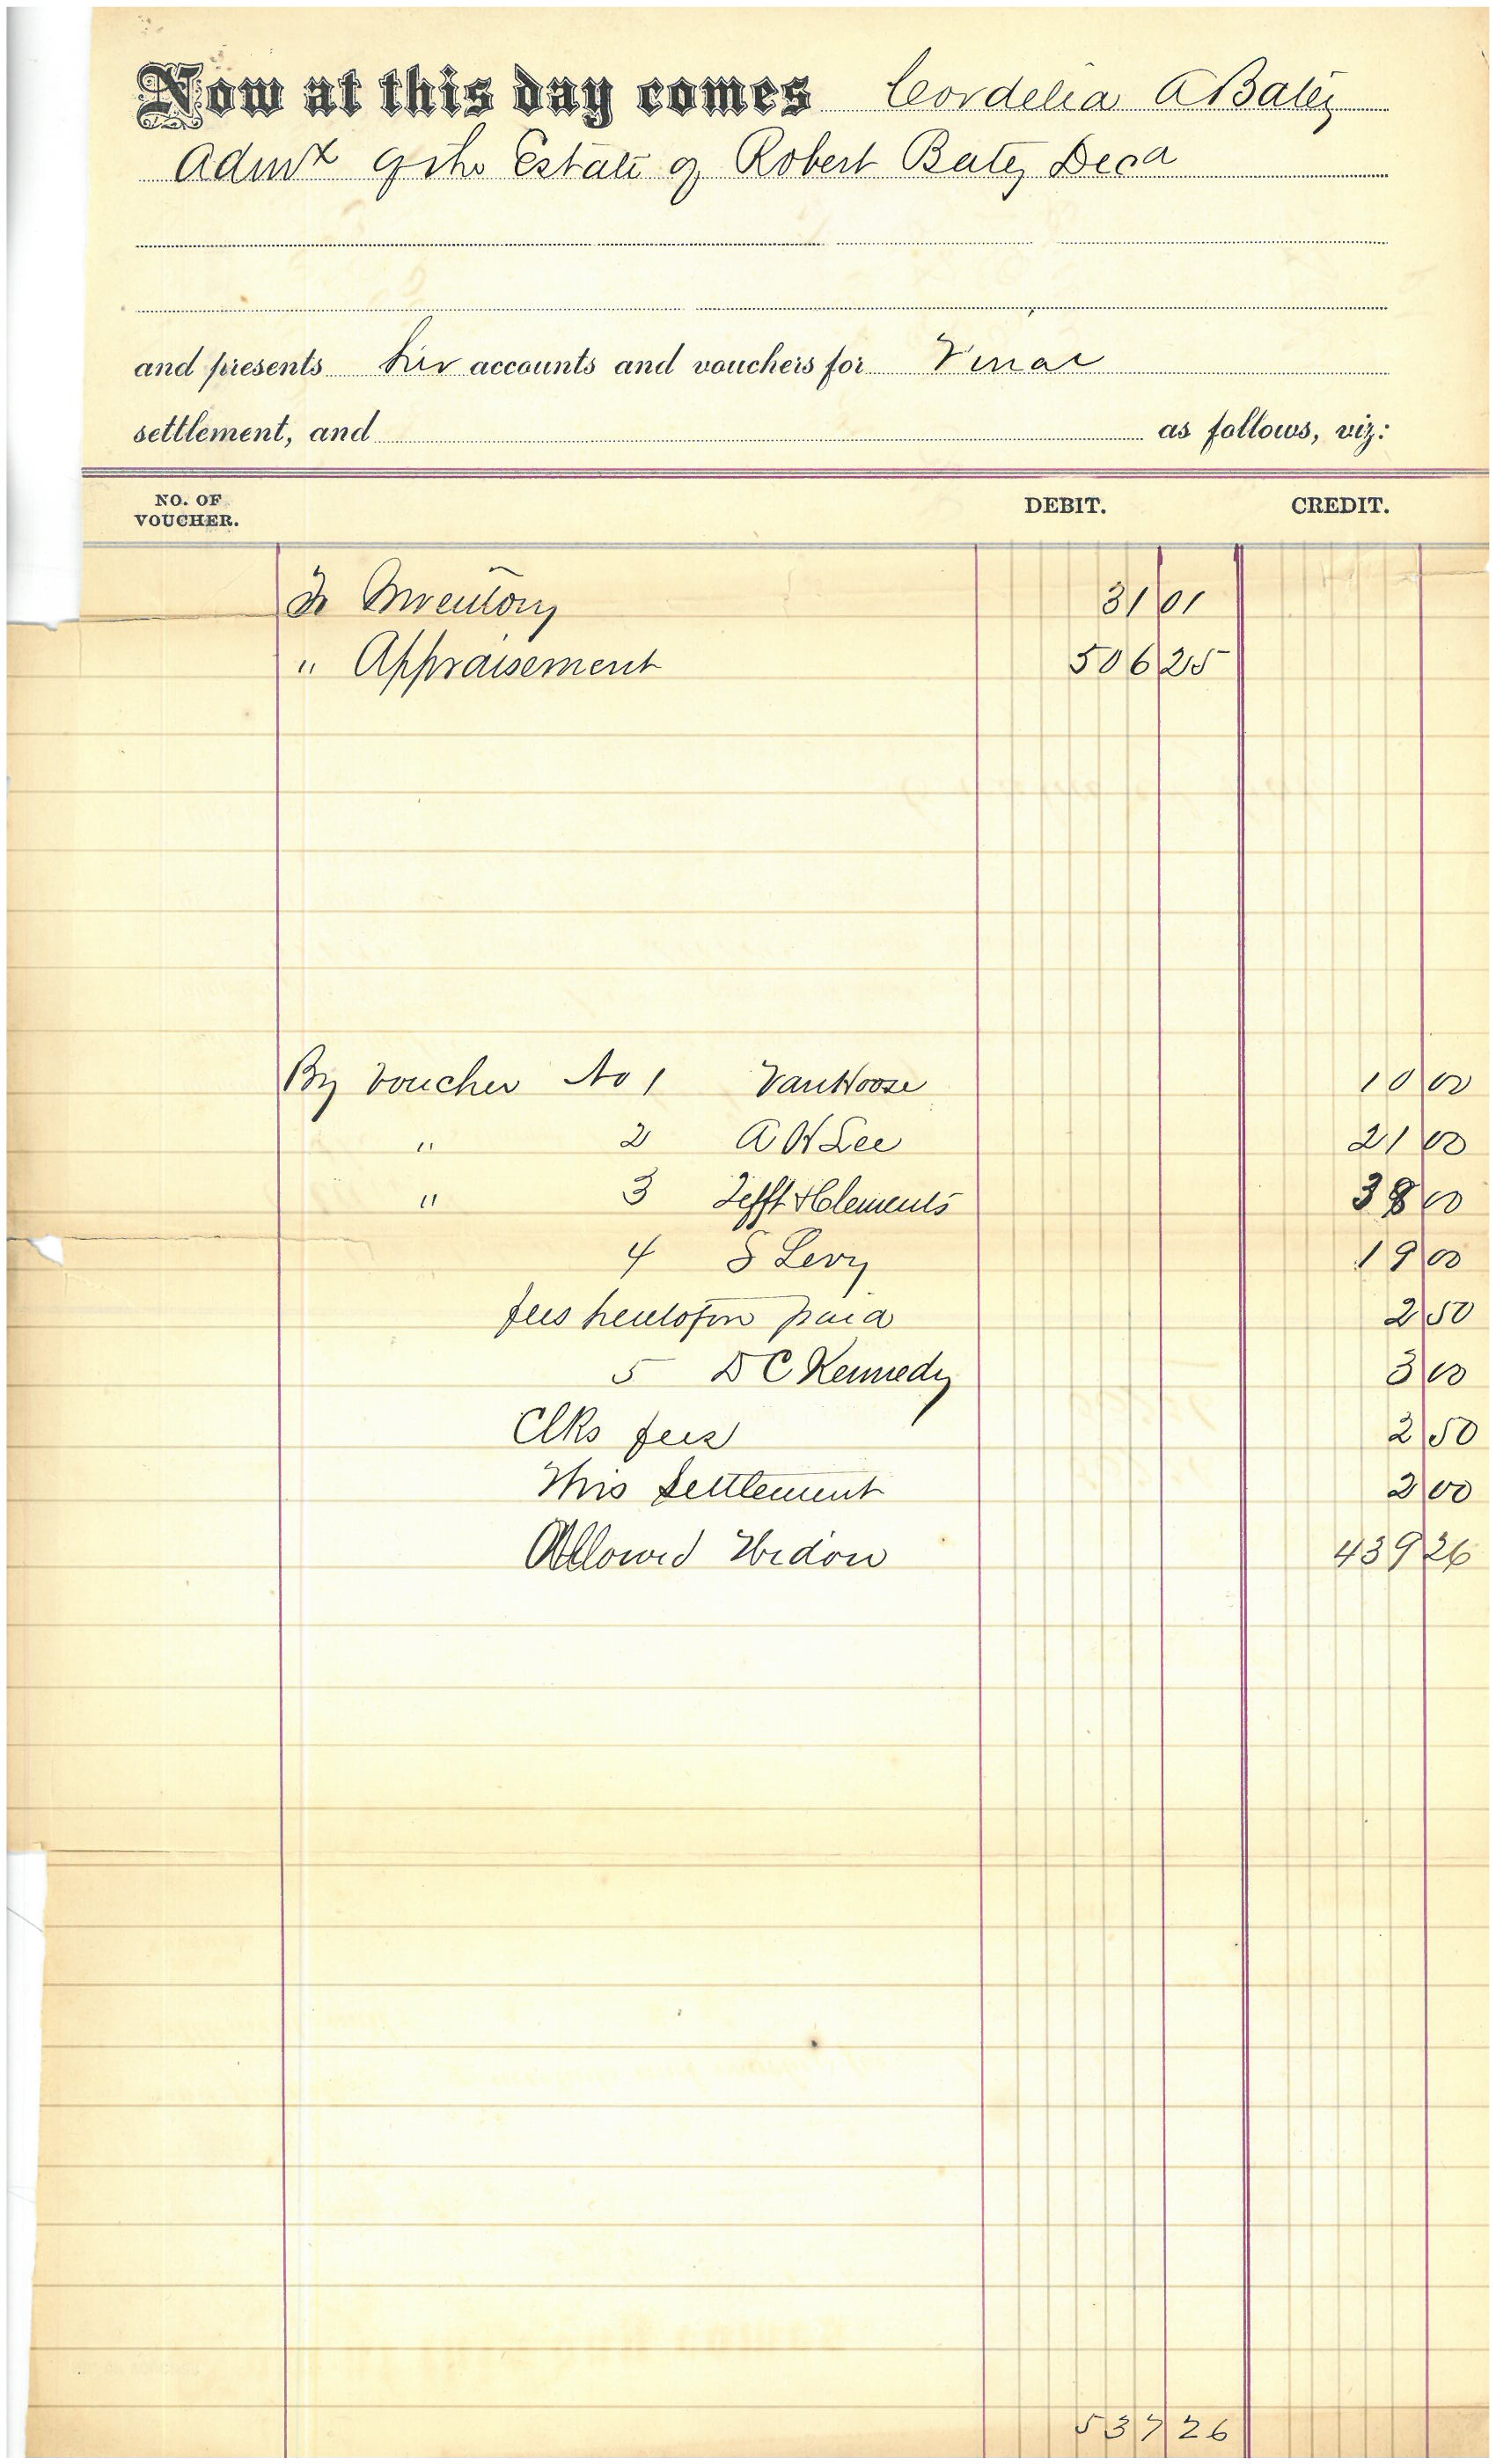 Now at this day comes Cordelia A Batey
Admx of the Estate of Robert Batey Decd
and presents her accounts and vouchers for Final
settlement, and as follows, viz:
NO. OF VOUCHER. DEBIT. CREDIT.
To Inventory 31 01
" Appraisement 506 25
By Voucher No 1 VanHoose 10 00
" 2 A H Lee 21 00
" 3 Tefft & Clements 38 00
4 S Levy 19 00
fees heretofore paid 2 50
5 D C Kennedy 3 00
Clks fees 2 50
This Settlement 2 00
Allowed Widow 439 26
537 26